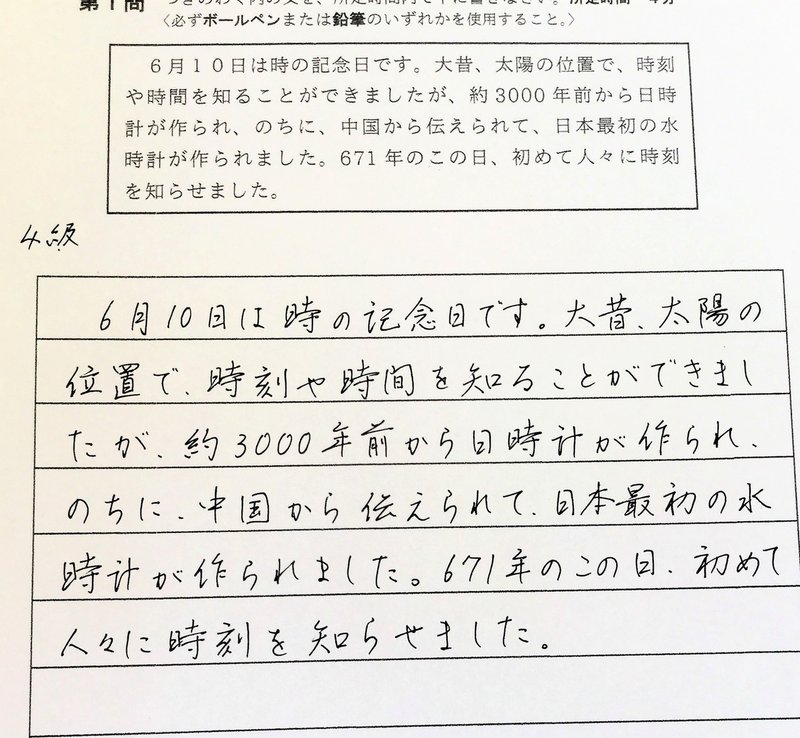 第1問 つぎのわく内の文を、所定時間内で下に書きなさい。所定時間 4分
〈必ずボールペンまたは鉛筆のいずれかを使用すること。〉
　6月10日は時の記念日です。大昔、太陽の位置で、時刻
や時間を知ることができましたが、約3000年前から日時
計が作られ、のちに、中国から伝えられて、日本最初の水
時計が作られました。671年のこの日、初めて人々に時刻
を知らせました。
4級
　6月10日は時の記念日です。大昔、太陽の
位置で、時刻や時間を知ることができまし
たが、約3000年前から日時計が作られ、
のちに、中国から伝えられて、日本最初の水
時計が作られました。671年のこの日、初めて
人々に時刻を知らせました。